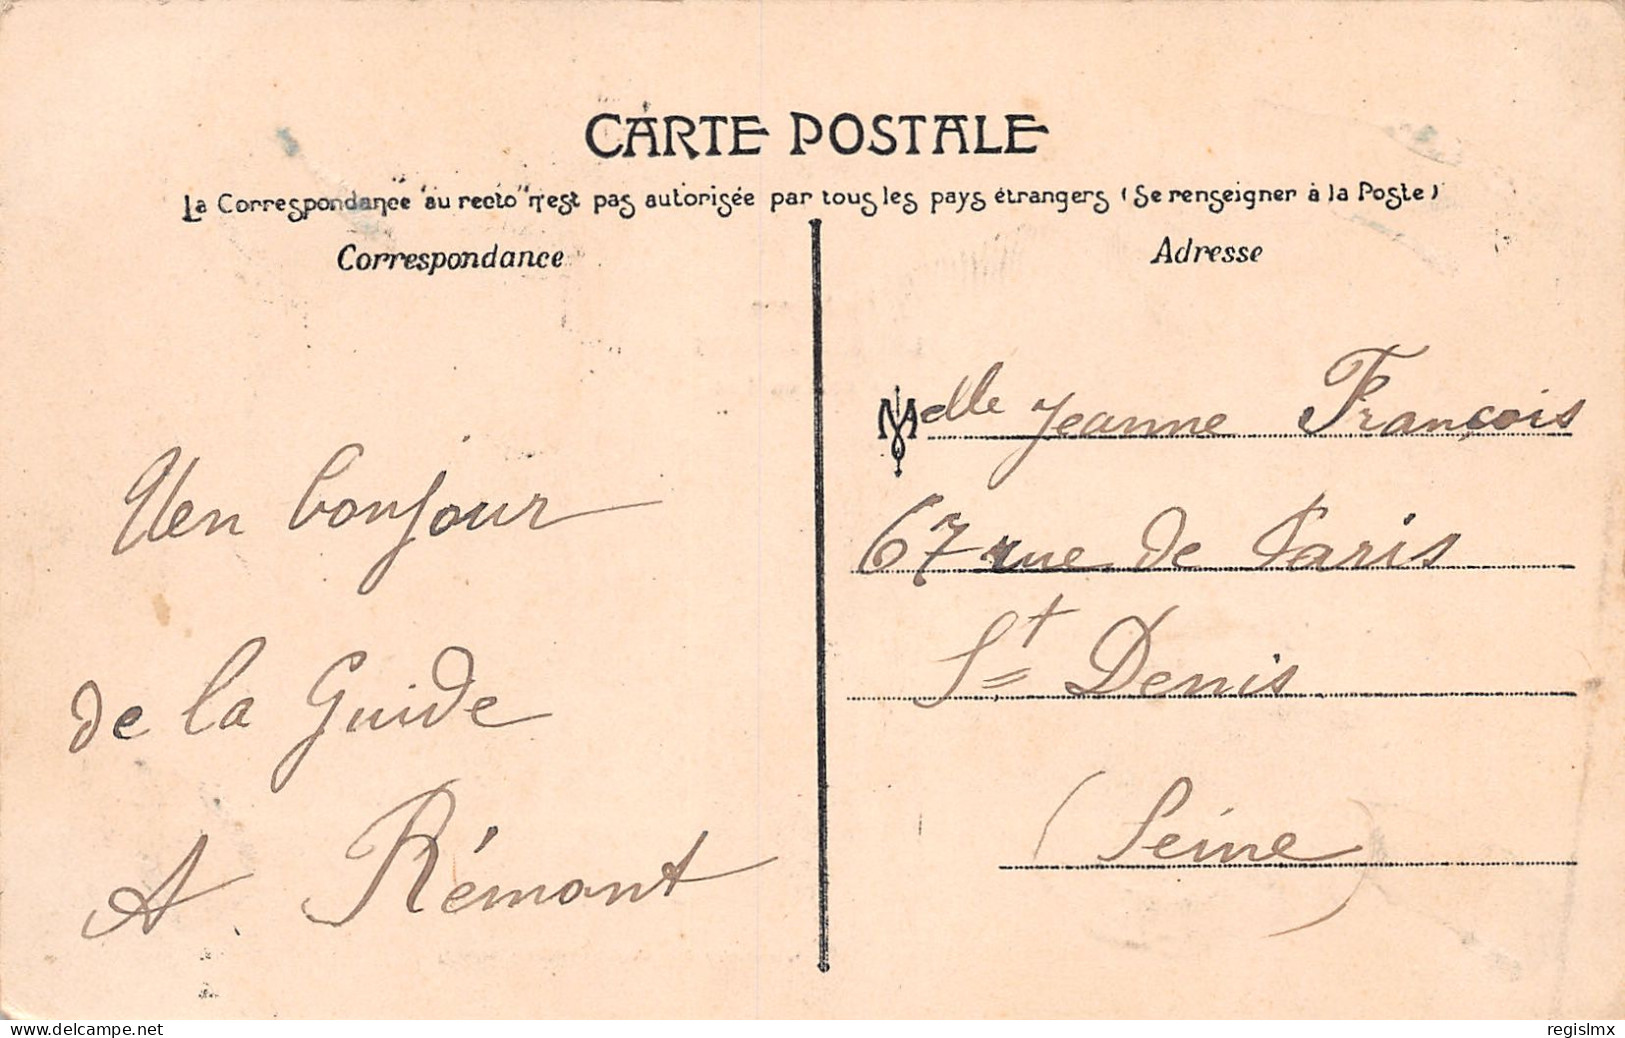 CARTE POSTALE
La Correspondance "au recto" n'est pas autorisée par tous les pays étrangers (Se renseigner à la Poste)
Correspondance
Un bonjour
de la Guide
A. Rémont
Adresse
Melle Jeanne François
67 rue de Paris
St Denis
(Seine)
www.delcampe.net
regislmx